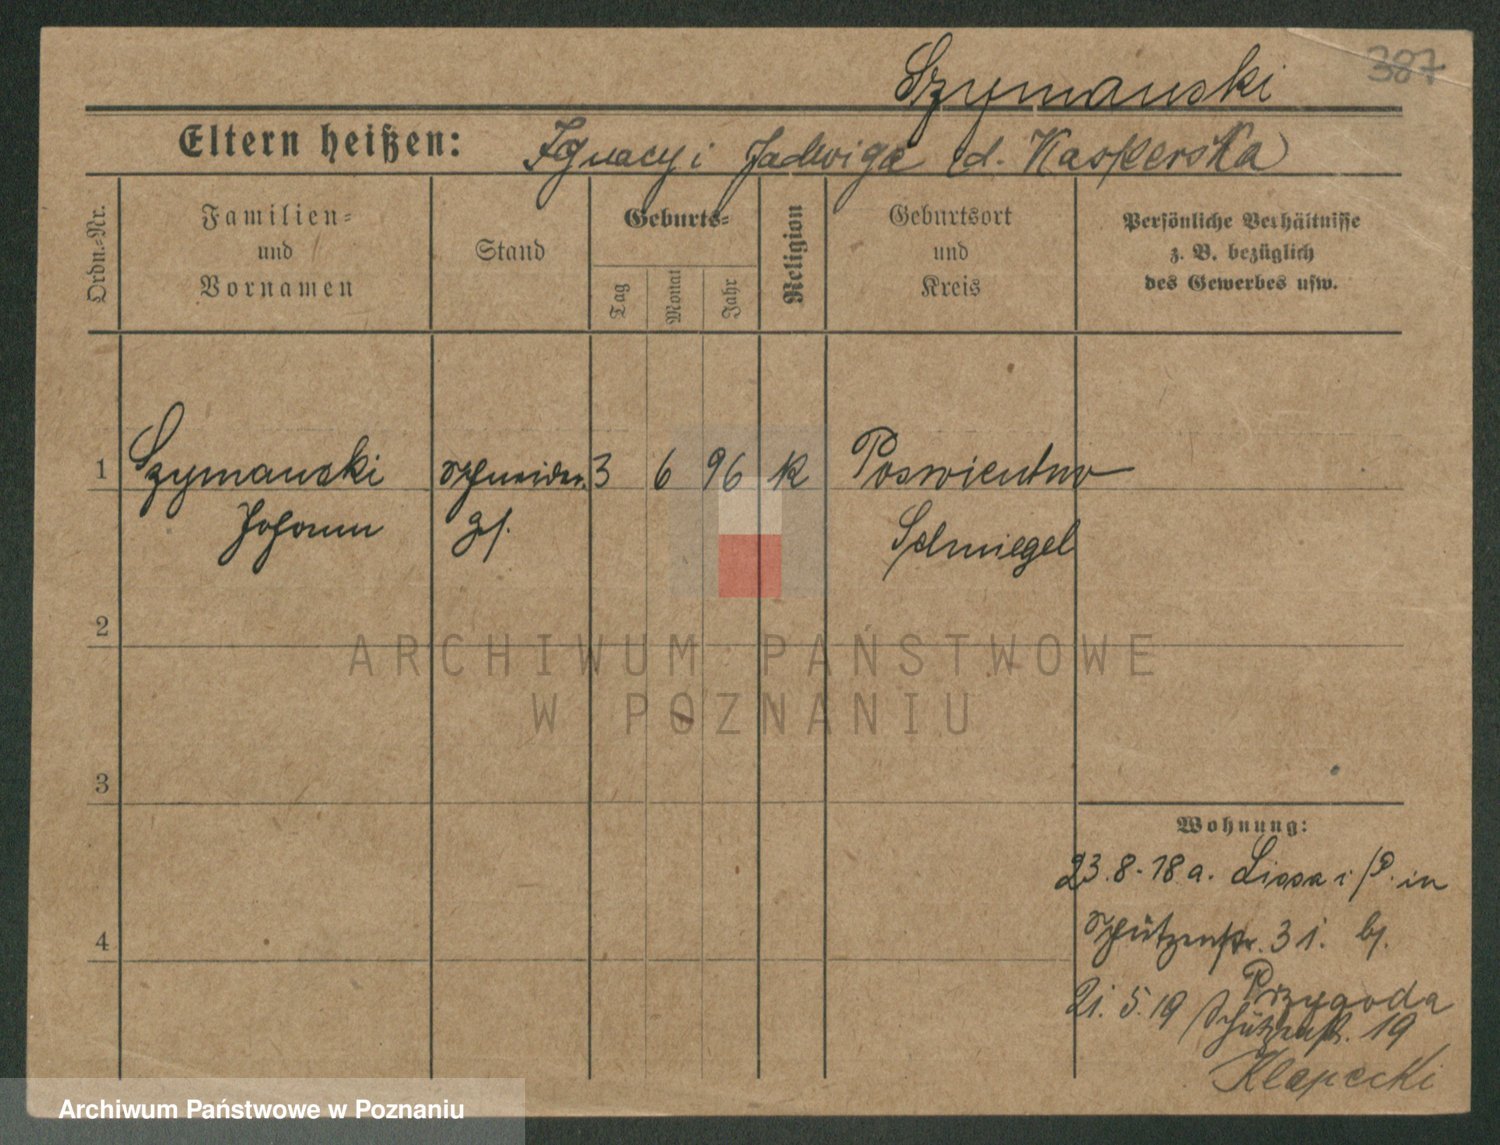 387
Szymanski
Eltern heißen: Ignacy i Jadwiga (d. Kasperska)
Ordn.-Nr.
Familien-
und
Vornamen
Stand
Geburts-
Tag
Monat
Jahr
Religion
Geburtsort
und
Kreis
Persönliche Verhältnisse
z. B. bezüglich
des Gewerbes usw.
1 Szymanski Schneider 3 6 96 K Poswientno
Johann Schmiegel
2
ARCHIWUM PAŃSTWOWE
W POZNANIU
3
Wohnung:
23.8.18 a. Lissa i/P. in
Schützenstr. 31. bj.
4
Przygoda
21.5.19 Schützenstr. 19
Klapecki
Archiwum Państwowe w Poznaniu